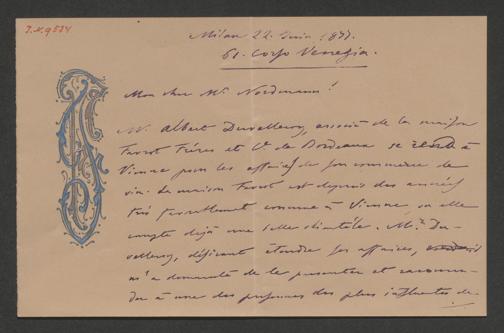 J.N. 9534
Milan 22 Juin 1877.
61. Corso Venezia.
Mon cher Mr. Nordmann!
Mr. Albert Duvelleroy, associé de la maison
Frères et Cie de Bordeaux se rend à
Vienne pour les affaires de son commerce de
vin. La maison est depuis des années
très favorablement connue à Vienne, où elle
compte déjà une belle clientèle. Mr. Du-
velleroy, désirant étendre ses affaires,
m'a demandé de le présenter et recomman-
der à une des personnes des plus influentes de